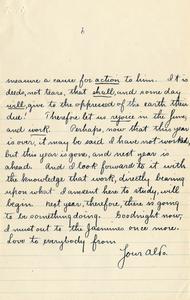 6
measure a cause for action to him. It is
deeds, not tears, that shall, and some day
will, give to the oppressed of the earth their
due! Therefore let us rejoice in the fine,
and work. Perhaps, now that this year
is over, it may be said I have not worked,
but this year is gone, and next year is
ahead. And I look forward to it with
the knowledge that work, directly bearing
upon what I am sent here to study, will
begin next year, therefore, there is going
to be something doing. Goodnight now,
I must out to the Jasmines once more.
Love to everybody from
Your